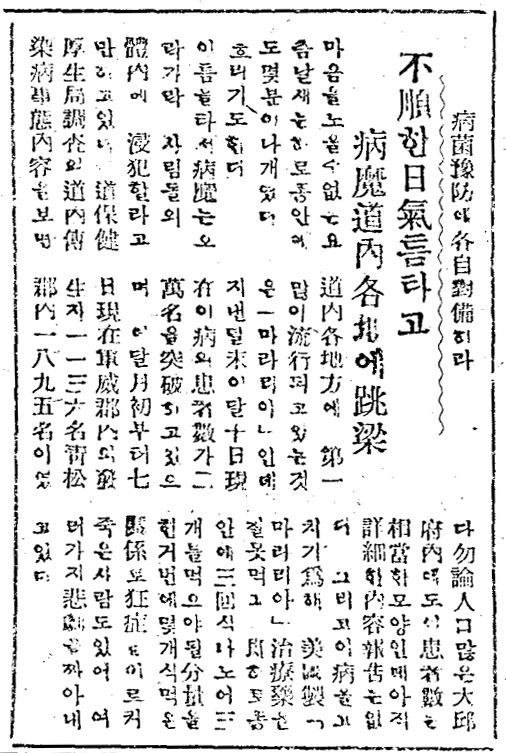 病菌豫防에各自對備하라
不順한日氣틈타고
病魔道內各地에跳梁
마음을노을수없는요
즘날새는하로종안에
도몇분이나개였다
흐리기도한다
이틈을타서病魔는오
라가락 사림들의
體內에 浸犯할라고
만하고있다 道保健
厚生局調査의道內傳
染病事態內容을보면
道內各地方에 第一
많이流行되고있는것
은「마라리아」인데
지낸달末이달十日現
在이病의患者數가二
萬名을突破하고있으
며 이달月初부터七
日現在軍威郡內의發
生자一一三六名靑松
郡內一八九五名이였
다勿論人口많은大邱
府內에도이患者數는
相當한모양인데아직
詳細한內容報告는없
다 그리고이病을고
치기爲해 美國製「
마리리아」治療藥을
잘못먹고 即하로동
안에三回식나노어三
개를먹으야될分量을
한거번에몇개식먹은
關係로狂症을이르켜
죽은사람도있어 여
러가지悲劇을짜아내
고있다